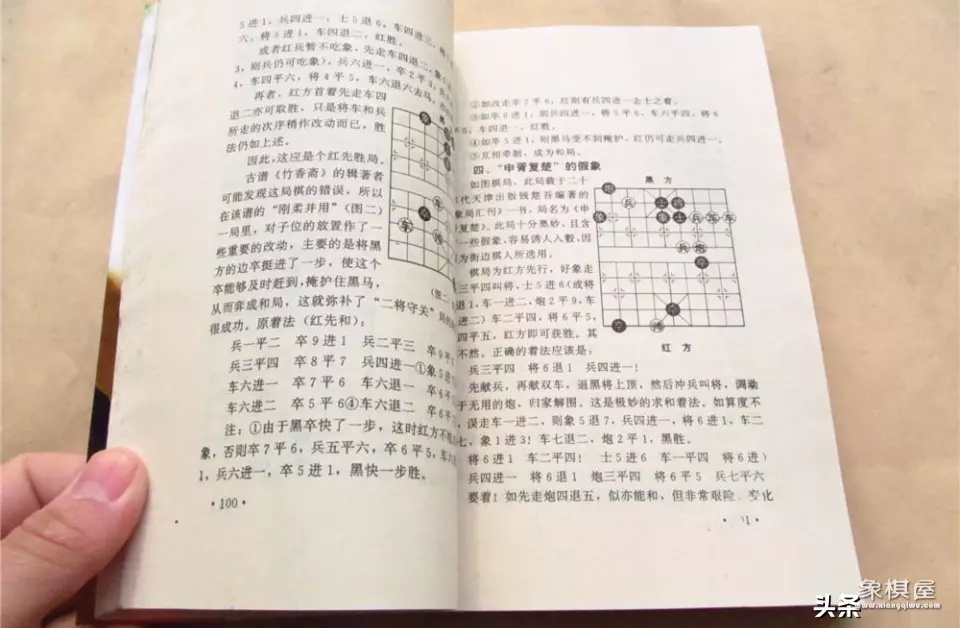 5进1，兵四进一，士5退6，车四进三，将
六，将5进1，车四退二，红胜。
或者红兵暂不吃象，先走车四退二，象
3，则兵仍可吃象），兵六进一，卒2平3，
4，车四平六，将4平5，车六退六去马，
再者，红方首着先走车四
退二亦可取胜，只是将车和兵
所走的次序稍作改动而已，胜
法仍如上述。
因此，这应是个红先胜局。
古谱《竹香斋》的辑著者
可能发现这局棋的错误，所以
在该谱的“刚柔并用”（图二）
一局里，对子位的放置作了一
些重要的改动，主要的是将黑
方的边卒挺进了一步，使这个
卒能够及时赶到，掩护住黑马，
从而弈成和局，这就弥补了“二将守关”
很成功。原着法（红先和）：
兵一平二 卒9进1 兵二平三
兵三平四 卒8平7 兵四进一①象5进
车六进一 卒7平6 车六退一 卒6平
车六进二 卒5平6④车六退二 卒6平
注：①由于黑卒快了一步，这时红方不
象，否则卒7平6，兵五平六，卒6平5，车六
1，兵六进一，卒5进1，黑快一步胜。
·100·
黑
车
（图二
②如改走卒7平6，红则有兵四进一去士之着。
③如卒6进1，则兵四进一，将5平6，车六平四，将6
5，车四退一，红胜。
④如卒5进1，则黑马受不到掩护，红仍可走兵四进一。
⑤互相牵制，成为和局。
四、“申胥复楚”的假象
如图棋局，此局载于二十
年代天津出版钱楚吾编著的
象局汇刊》一书，局名为《申
胥复楚》。此局十分奥妙，且含
一些假象，容易诱人入彀，因
为街边棋人所选用。
棋局为红方先行，好象走
三平四叫将，士5进6（或将
退1，车一进二，炮2平9，车
进二）车二平四，将6平5，
四平五，红方即可获胜。其
不然。正确的着法应该是：
黑方
红方
兵三平四 将6退1 兵四进一！
先献兵，再献双车，迫黑将上顶，然后冲兵叫将，调动
于无用的炮，归家解围。这是极妙的求和着法。如算度不
误走车一进二，则象5退7，兵四进一，将6进1，车二
七，象1进3！车七退二，炮2平1，黑胜。
将6进1 车二平四！ 士5进6 车一平四 将6进）
兵四进一 将6退1 炮三平四 将6平5 兵七平六
要着！如先走炮四退五，似亦能和，但非常艰险，变化
头条 象棋屋
www.xiangqiwu.com